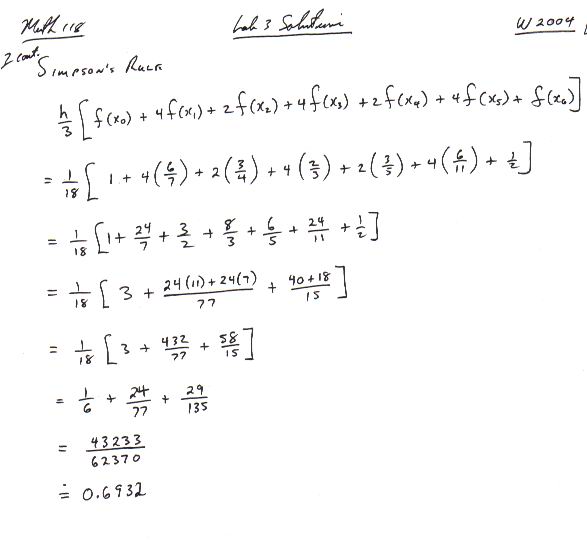 Math 118 Lab 3 Solutions W 2004
2 cont. Simpson's Rule
h/3 [ f(x₀) + 4f(x₁) + 2f(x₂) + 4f(x₃) + 2f(x₄) + 4f(x₅) + f(x₆) ]
= 1/18 [ 1 + 4(6/7) + 2(3/4) + 4(2/3) + 2(3/5) + 4(6/11) + 1/2 ]
= 1/18 [ 1 + 24/7 + 3/2 + 8/3 + 6/5 + 24/11 + 1/2 ]
= 1/18 [ 3 + (24(11) + 24(7))/77 + (40+18)/15 ]
= 1/18 [ 3 + 432/77 + 58/15 ]
= 1/6 + 24/77 + 29/135
= 43233/62370
≐ 0.6932